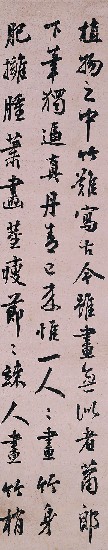 植物之中竹難寫古今雖畫無似者蕭郎
下筆獨逼真丹青已來惟一人人畫竹身
肥擁腫蕭畫莖瘦節節竦人畫竹梢